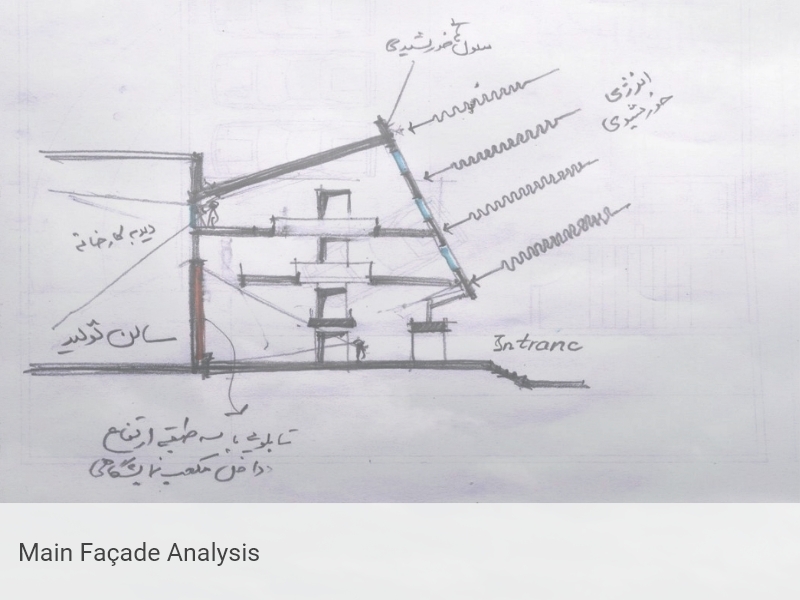 سلول های خورشیدی
انرژی
خورشیدی
دید به کارخانه
سالن تولید
Entranc
تابلویی با سه طبقه ارتفاع
داخل مکعب نمایشگاهی
Main Façade Analysis